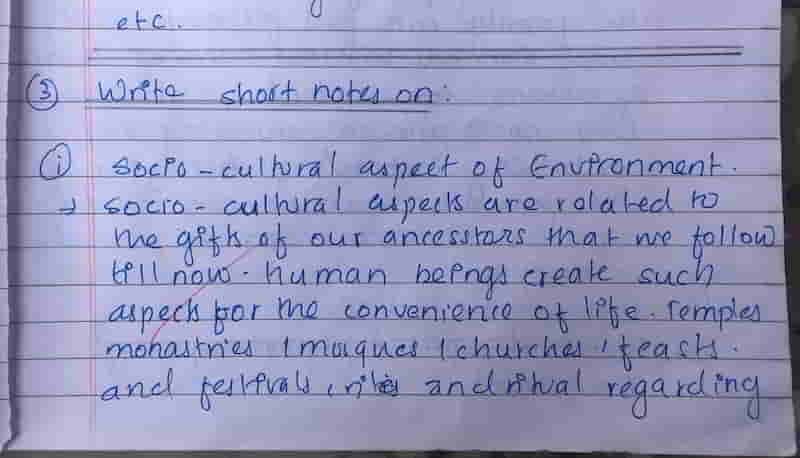 etc.
③ Write short notes on:
① socio-cultural aspect of Environment.
→ socio-cultural aspects are related to
the gifts of our ancesstors that we follow
till now. human beings create such
aspects for the convenience of life. Temples
monastries, moques, churches, feasts.
and festivals, rites and ritual regarding